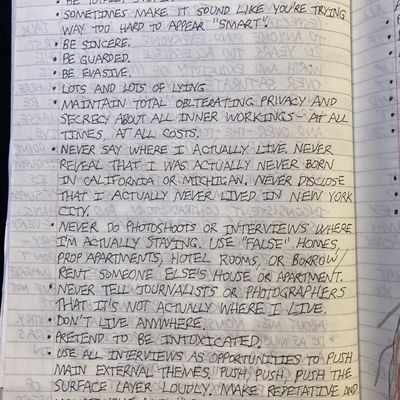 • SOMETIMES MAKE IT SOUND LIKE YOU'RE TRYING
WAY TOO HARD TO APPEAR "SMART".
• BE SINCERE.
• BE GUARDED.
• BE EVASIVE.
• LOTS AND LOTS OF LYING
• MAINTAIN TOTAL OBLTERATING PRIVACY AND
SECRECY ABOUT ALL INNER WORKINGS - AT ALL
TIMES, AT ALL COSTS.
• NEVER SAY WHERE I ACTUALLY LIVE. NEVER
REVEAL THAT I WAS ACTUALLY NEVER BORN
IN CALIFORNIA OR MICHIGAN. NEVER DISCLOSE
THAT I ACTUALLY NEVER LIVED IN NEW YORK
CITY.
• NEVER DO PHOTSHOOTS OR INTERVIEWS WHERE
I'M ACTUALLY STAYING. USE "FALSE" HOMES,
PROP APARTMENTS, HOTEL ROOMS, OR BORROW/
RENT SOMEONE ELSE'S HOUSE OR APARTMENT.
• NEVER TELL JOURNALISTS OR PHOTOGRAPHERS
THAT IT'S NOT ACTUALLY WHERE I LIVE.
• DON'T LIVE ANYWHERE.
• PRETEND TO BE INTOXICATED.
• USE ALL INTERVIEWS AS OPPORTUNITIES TO PUSH
MAIN EXTERNAL THEMES. PUSH, PUSH, PUSH THE
SURFACE LAYER LOUDLY. MAKE REPETATIVE AND